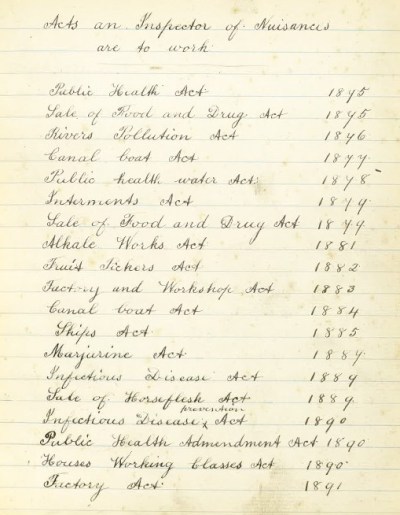 Acts an Inspector of Nuisances
are to work
Public Health Act 1875
Sale of Food and Drug Act 1875
Rivers Pollution Act 1876
Canal boat Act 1877
Public health water Act 1878
Interments Act 1879
Sale of Food and Drug Act 1879
Alkale Works Act 1881
Fruit Pickers Act 1882
Factory and Workshop Act 1883
Canal boat Act 1884
Ships Act 1885
Marjurine Act 1887
Infectious Disease Act 1889
Sale of Horseflesh Act 1889
prevention
Infectious Disease Act 1890
Public Health Admendment Act 1890
Houses Working Classes Act 1890
Factory Act 1891